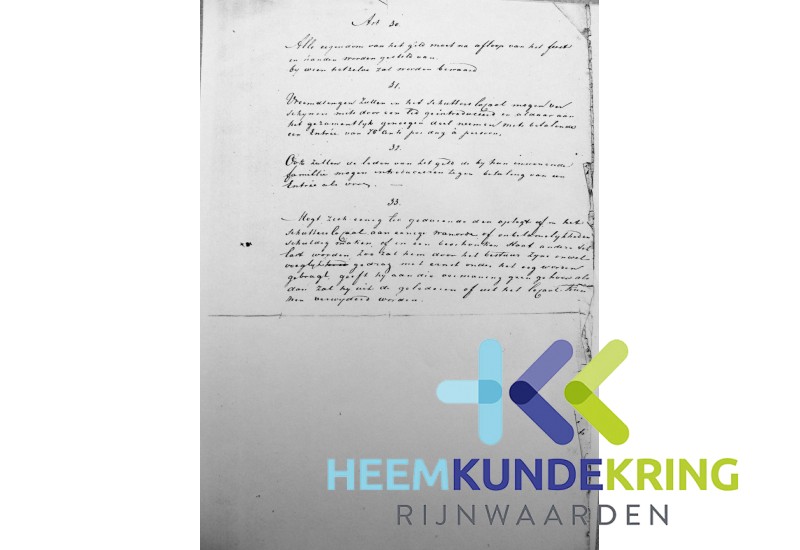 Art 30.
Alle eigendom van het gild moet na afloop van het feest
in handen worden gesteld aan
by wien hetzelve zal worden bewaard
31.
Vreemdlingen zullen in het Schutters Locaal mogen ver
schynen mits door een lid geintroduceerd en aldaar aan
het gezamentlyk genoegen deel nemen mits betalende
een Entrée van 70 Cents per dag à persoon.
32.
Ook zullen de leden van het gild de by hun inwonende
famillie mogen introduceeren tegen betaling van een
Entrée als voren. —
33.
Mogt zich eenig lid gedurende den optogt of in het
Schutters Locaal aan eenige wanorde of onbetamelykheden
schuldig maken, of in een beschonken staat anderen tot
last worden, zoo zal hem door het bestuur zyne onwel-
gedrag met ernst onder het oog worden
gebragt, geeft hy aan die vermaning geen gehoor als
dan zal hy uit de gelederen of uit het Locaal kun
nen verwyderd worden.
HEEMKUNDEKRING
RIJNWAARDEN